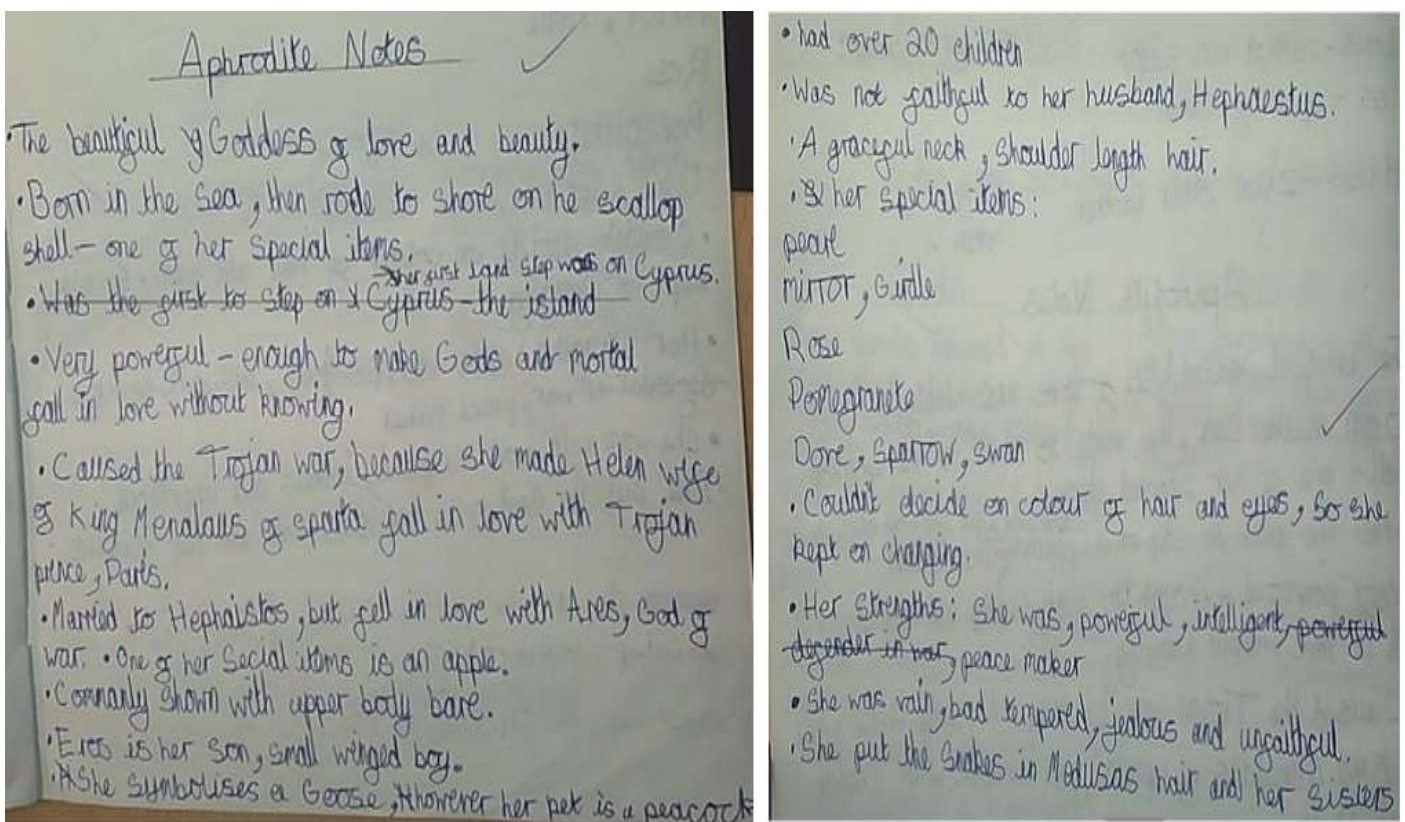 Aphrodite Notes
•The beautiful Goddess of love and beauty.
•Born in the Sea, then rode to shore on he scallop
shell - one of her special items.
her first land step was on Cyprus.
•Was the first to step on Cyprus - the island
•Very powerful - enough to make Gods and mortal
fall in love without knowing.
•Caused the Trojan war, because she made Helen wife
of King Menalaus of sparta fall in love with Trojan
prince, Paris.
•Married to Hephaistos, but fell in love with Ares, God of
war. •One of her Secial items is an apple.
•Commanly shown with upper body bare.
•Eros is her son, small winged boy.
•She symbolises a Goose, however her pet is a peacock
•had over 20 children
•Was not faithful to her husband, Hephaestus.
•A graceful neck, shoulder length hair.
•her special items:
pearl
mirror, Girdle
Rose
Pomegranete
Dove, sparrow, swan
•Couldnt decide on colour of hair and eyes, so she
kept on changing.
•Her strengths: She was, powerful, intelligent, powerful
defender in war, peace maker
•She was vain, bad tempered, jealous and unfaithful.
•She put the snakes in Medusas hair and her sisters